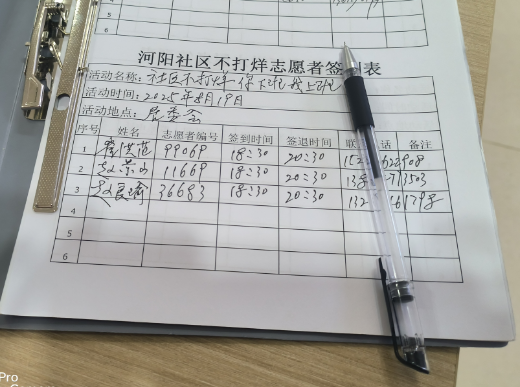 6
河阳社区不打烊志愿者签 表
活动名称: 社区不打烊 你 班 我上班
活动时间: 2025年8月19日
活动地点: 居委会
序号 姓名 志愿者编号 签到时间 签退时间 联 话 备注
1 洪范 99069 18:30 20:30 908
2 赵 11669 18:30 20:30 138 3503
3 赵 瑜 36683 18:30 20:30 132 1798
4
5
6
Pro